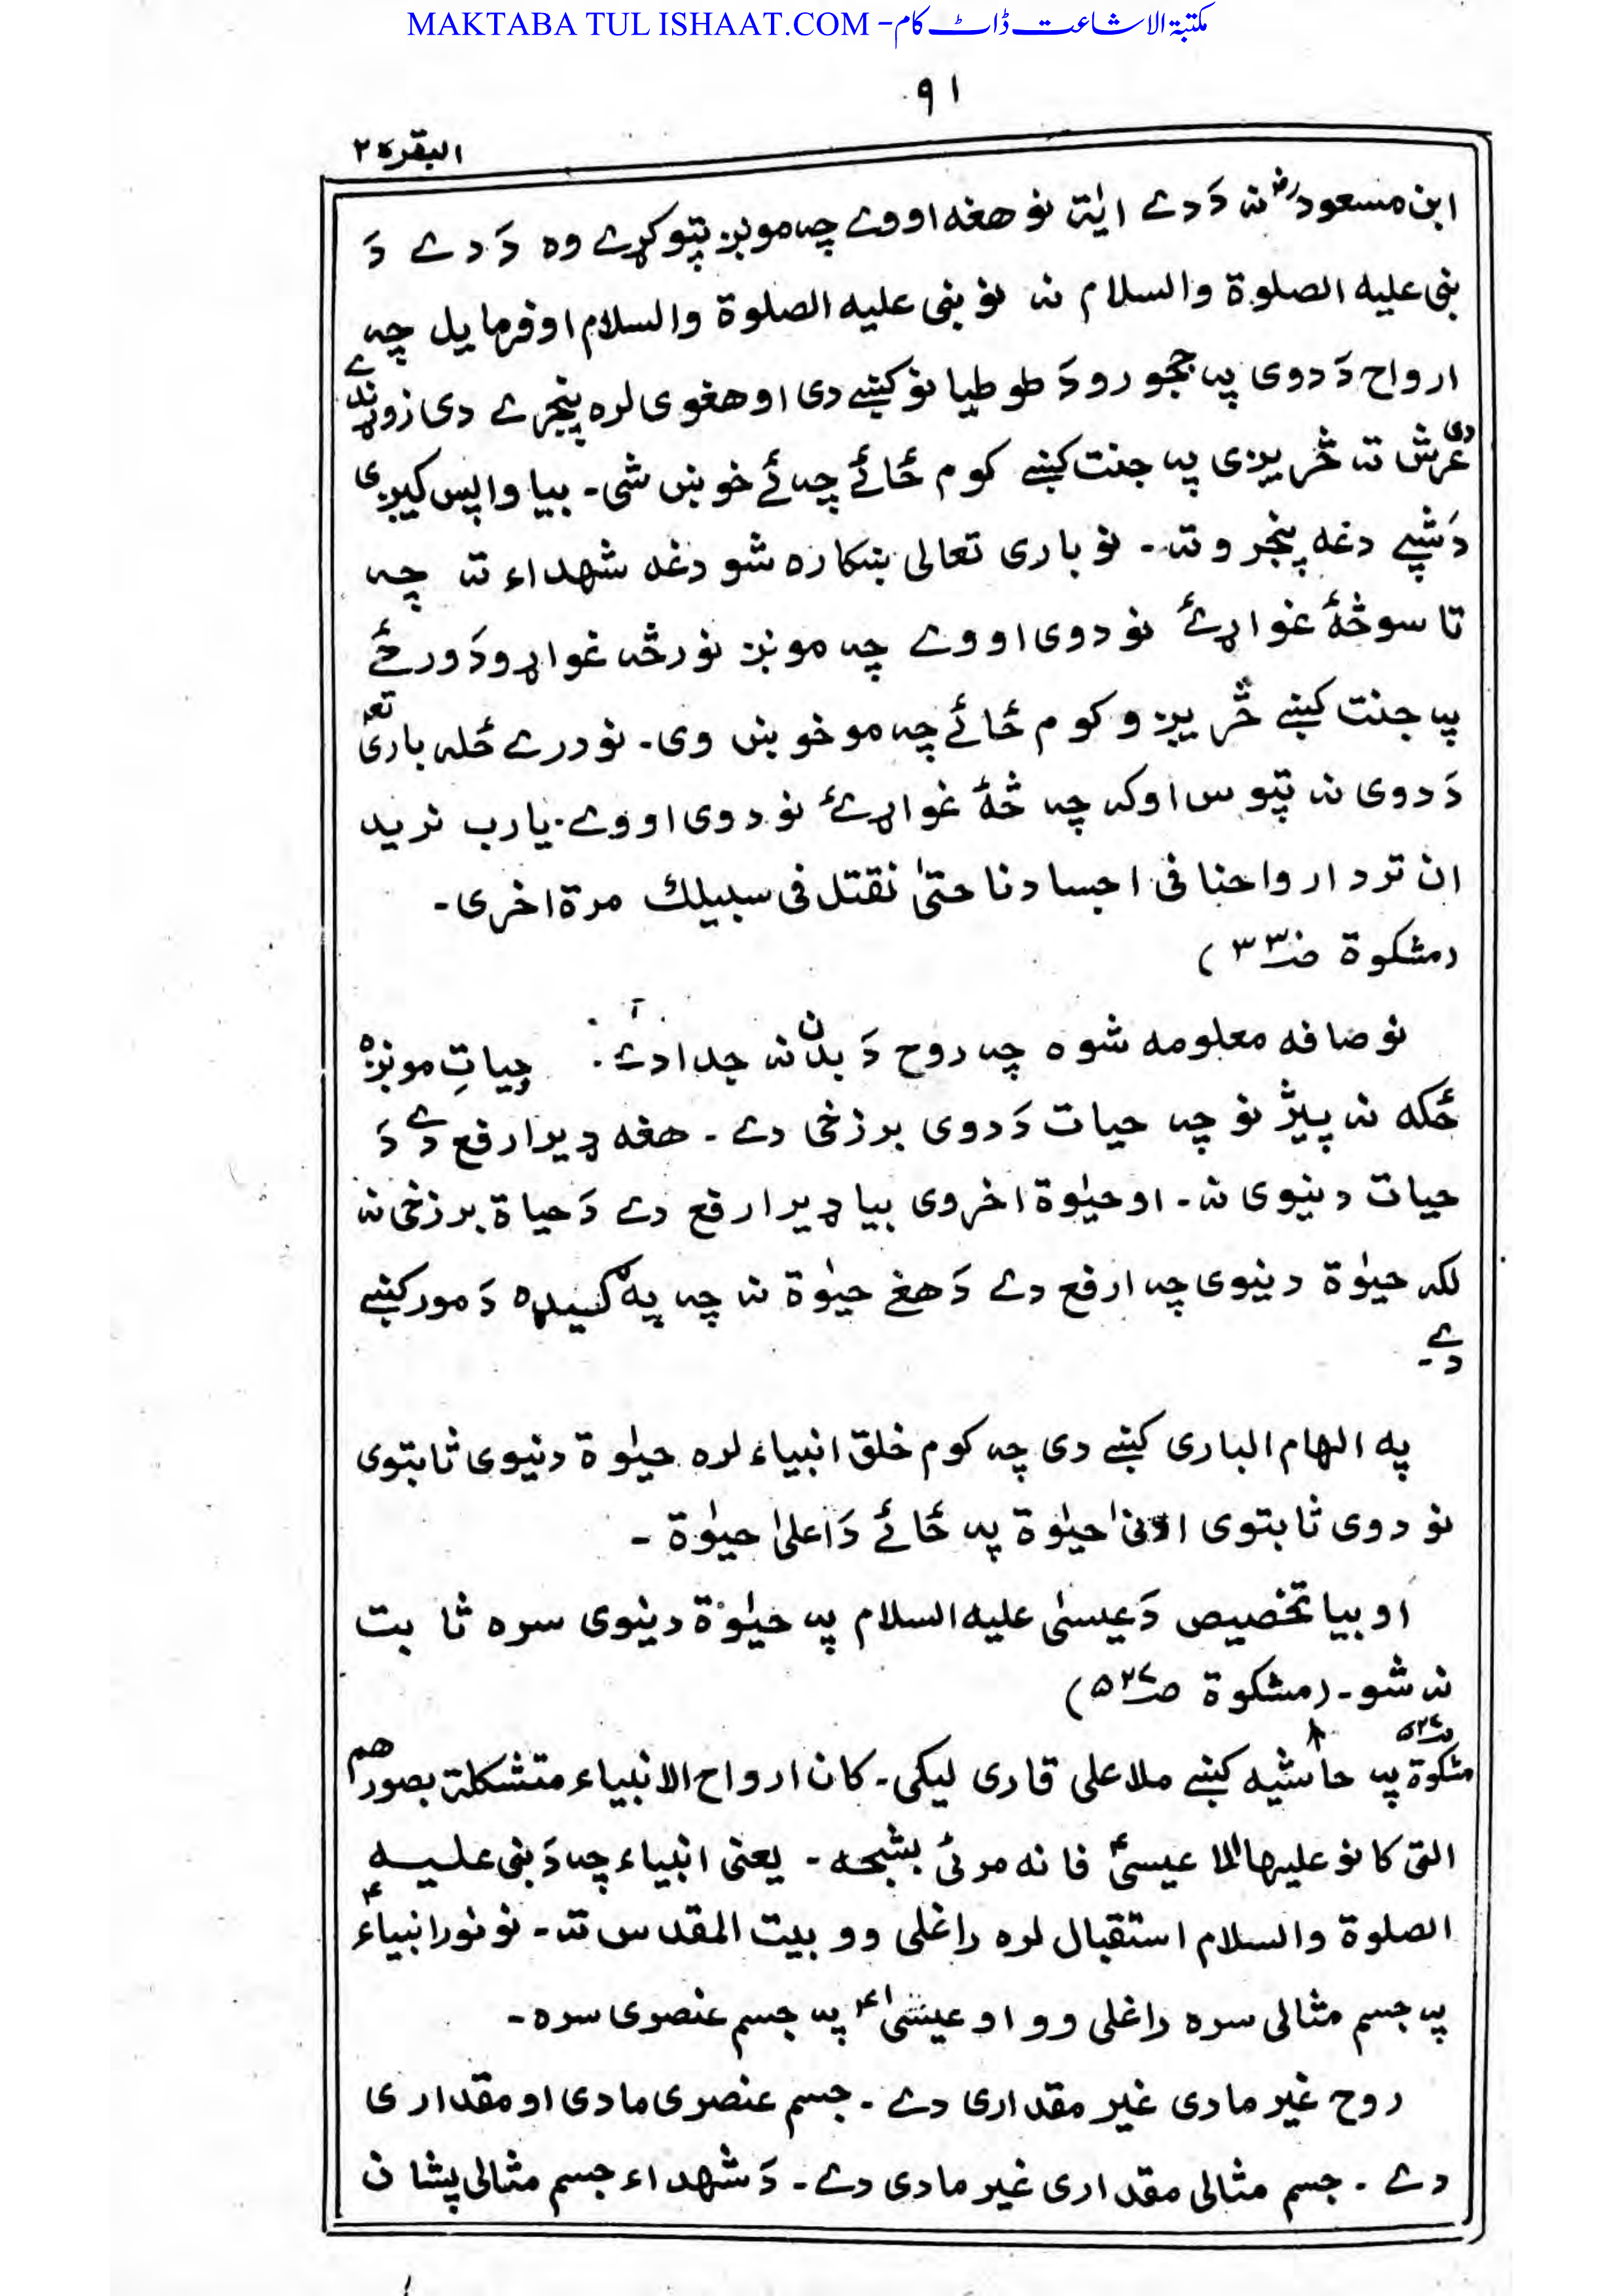 MAKTABA TUL ISHAAT.COM - مکتبۃ الاشاعت ڈاٹ کام
۹۱
البقرة ۲
ابن مسعودؓ نہ دَدے ایٰة نو هغه اووے چہ مونږ تپوکړے وه دَ دے دَ
نبی علیه الصلوة والسلام نہ نو نبی علیه الصلوة والسلام اوفرمایل چہ
ارواح دَدوی پہ ججورو دَ طوطیانو کښے دی اوهغوی لره پنجرے دی زوړندے
دی عرش تہ څریږی پہ جنت کښے کوم ځائے چہ ئے خوښ شی۔ بیا واپس کیږی
دَشپے دغه پنجروتہ۔ نو باری تعالی ښکاره شو دغه شهداء تہ چہ
تاسو څۀ غواړئ نو دوی اووے چہ مونږ نور څہ غواړو دَورځے
پہ جنت کښے څریږو کوم ځائے چہ مو خوښ وی۔ نو درے ځلہ باری تعٰ
دَدوی نہ تپوس اوکہ چہ څۀ غواړئ نو دوی اووے۔ یارب نرید
ان ترد ارواحنا فی اجسادنا حتیٰ نقتل فی سبیلك مرة اخری۔
(مشکوة صـ۳۳)
نو صافه معلومه شوه چہ روح دَ بدن نہ جدا دے۔ حیاتِ مونږه
ځکه نہ پیژنو چہ حیات دَدوی برزخی دے۔ هغه ډیر ارفع دے دَ
حیات دنیوی نہ۔ اوحیٰوة اخروی بیا ډیر ارفع دے دَحیاة برزخی نہ
لکہ حیٰوة دنیوی چہ ارفع دے دَهغے حیٰوة نہ چہ په ګیډه دَمور کښے
دے۔
په الهام الباری کښے دی چہ کوم خلق انبیاء لره حیٰوة دنیوی ثابتوی
نو دوی ثابتوی ادنیٰ حیٰوة پہ ځائے دَاعلیٰ حیٰوة۔
او بیا تخصیص دَعیسیٰ علیه السلام پہ حیٰوة دنیوی سره ثابت
نہ شو۔ (مشکوة صـ۵۲۷)
صـ۵۲۷
مشکوة پہ حاشیه کښے ملا علی قاری لیکی۔ کان ارواح الانبیاء متشکلة بصورهم
التی کانو علیها الا عیسیٰؑ فانه مرئی بشبحه۔ یعنی انبیاء چہ دَنبی علیه
الصلوة والسلام استقبال لره راغلی وو بیت المقدس تہ۔ نو نور انبیاءؑ
پہ جسم مثالی سره راغلی وو او عیسیٰؑ پہ جسم عنصری سره۔
روح غیر مادی غیر مقداری دے۔ جسم عنصری مادی او مقداری
دے۔ جسم مثالی مقداری غیر مادی دے۔ دَشهداء جسم مثالی پشان